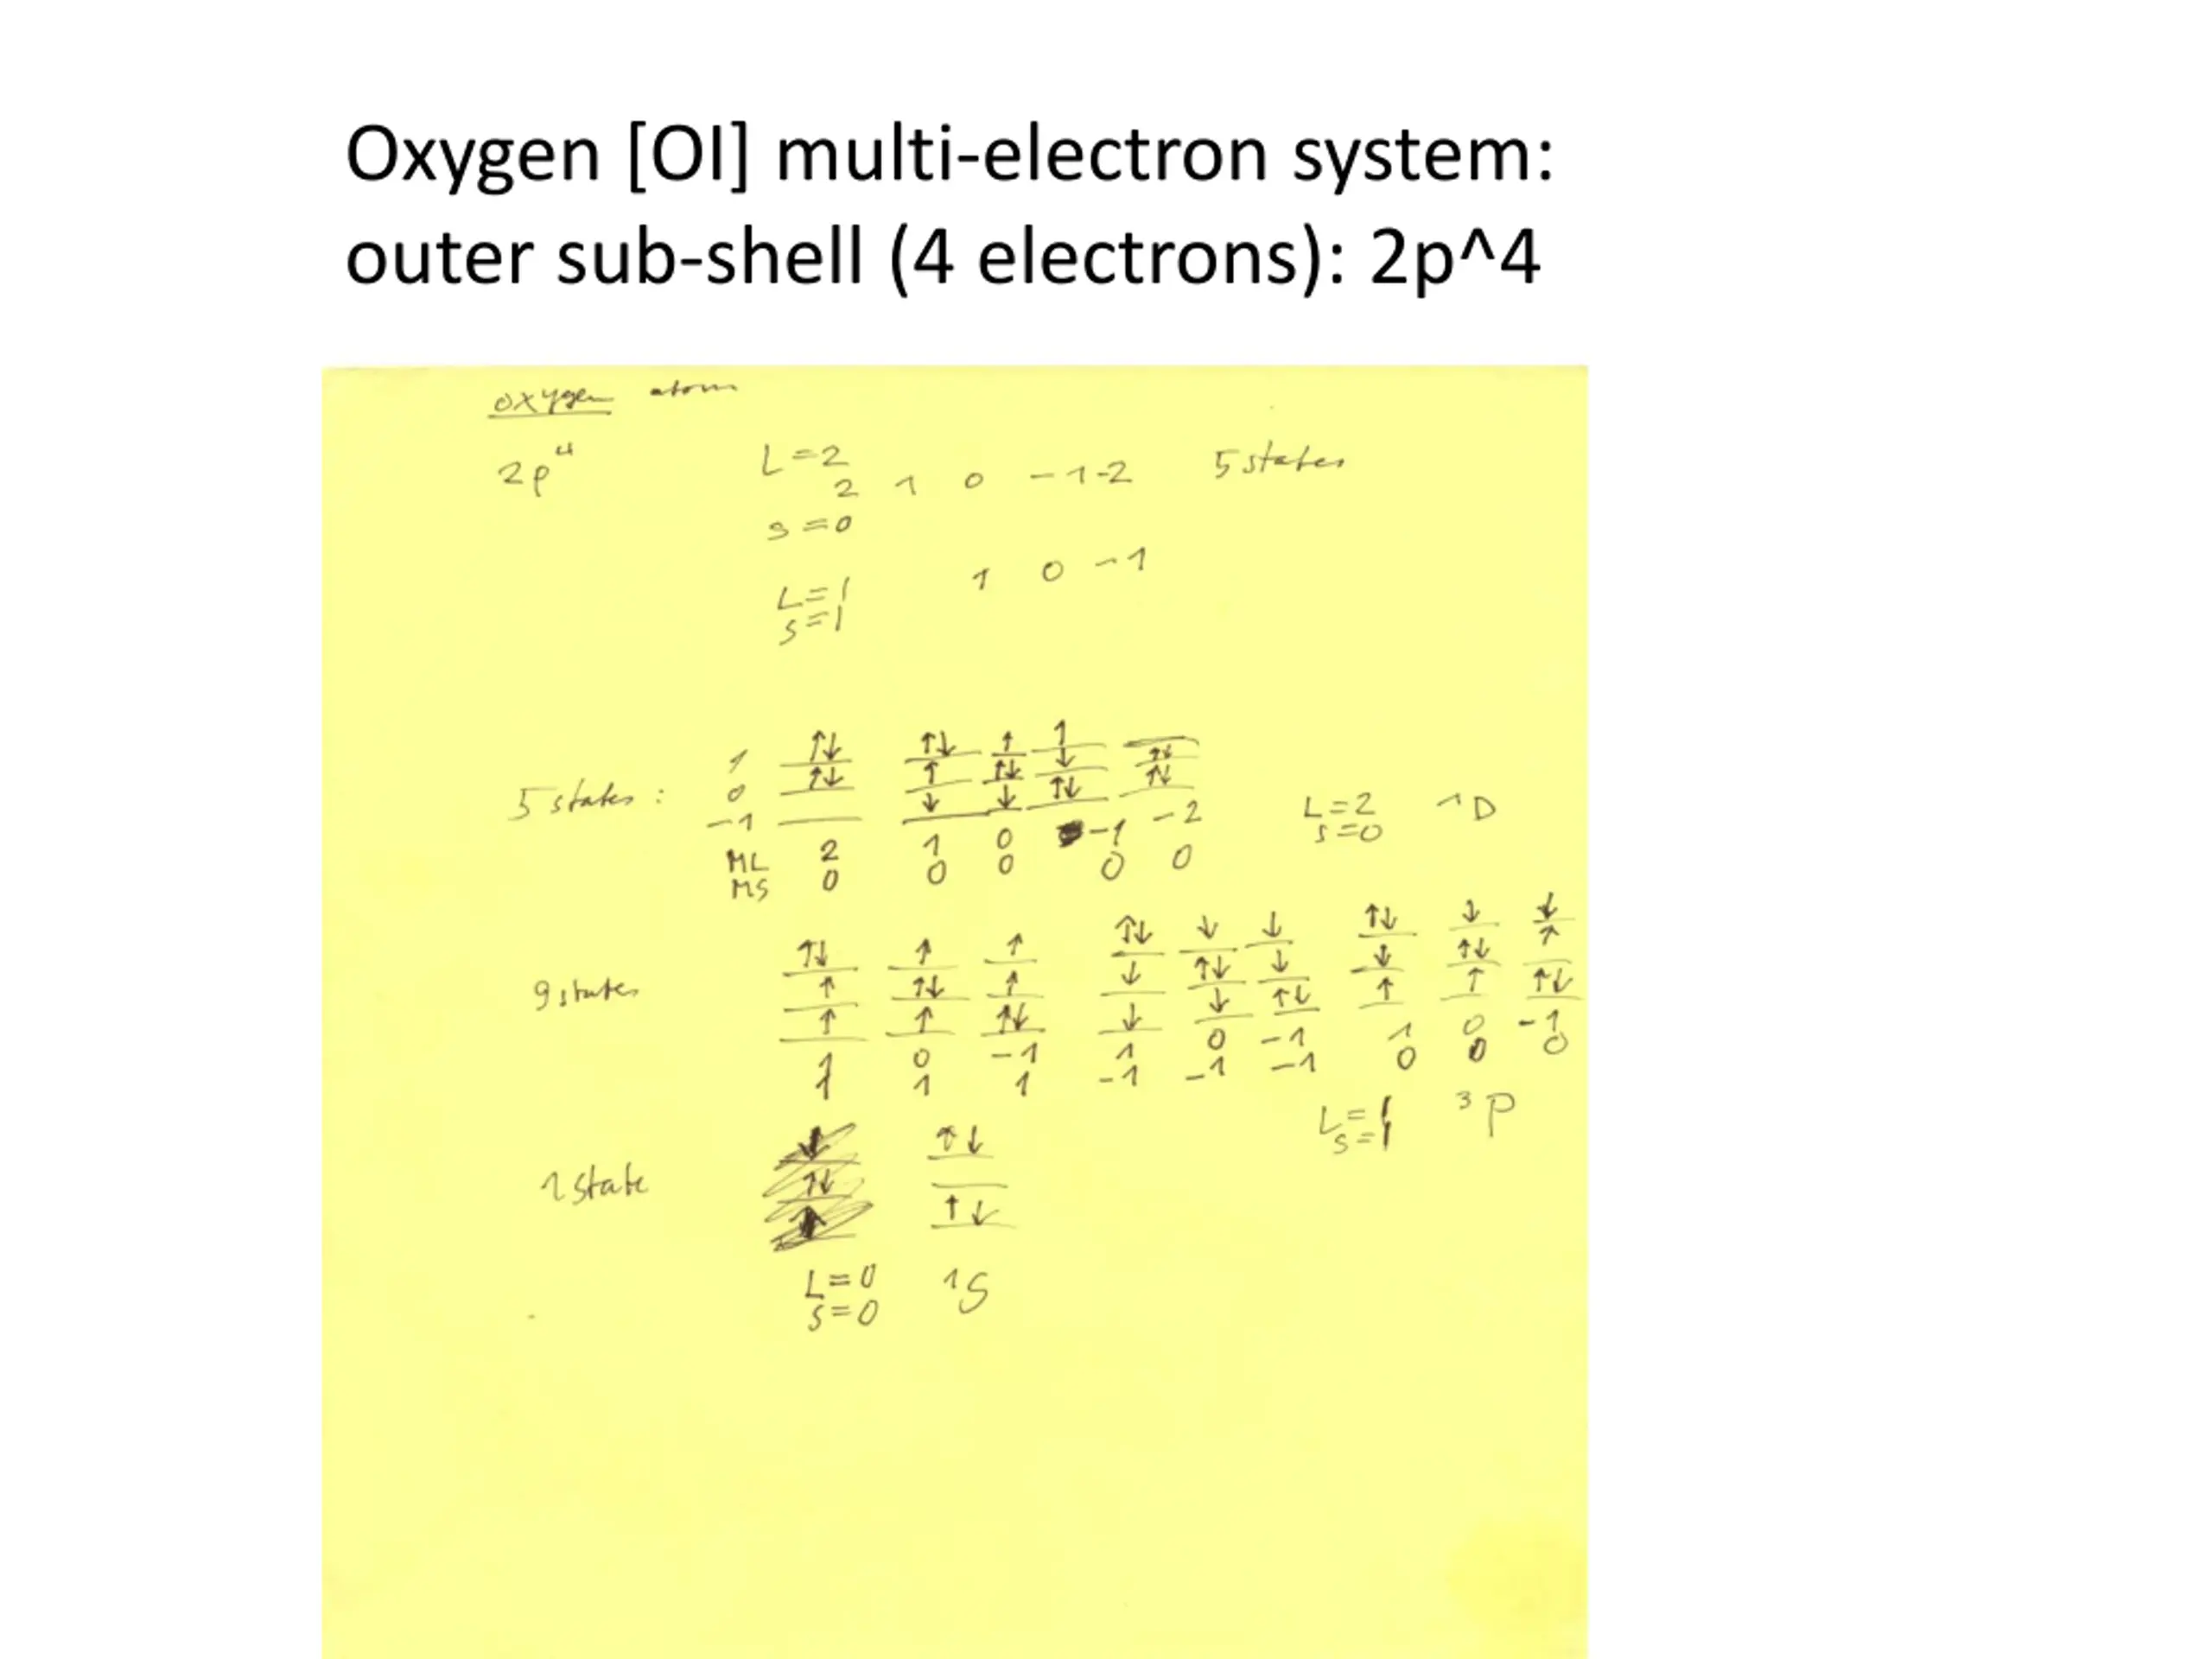 Oxygen [OI] multi-electron system:
outer sub-shell (4 electrons): 2p^4
oxygen atom
2p⁴ L=2
2 1 0 -1 -2 5 states
s=0
1 0 -1
L=1
s=1
5 states: 1 ↑↓ ↑↓ ↑ ↑
0 ↑↓ ↑ ↑↓ ↓ ↑↓
-1 ↓ ↓ ↑↓ ↑↓
ML 2 1 0 -1 -2 L=2 ¹D
MS 0 0 0 0 0 s=0
9 states ↑↓ ↑ ↑ ↑↓ ↓ ↓ ↑↓ ↓ ↓
↑ ↑↓ ↑ ↓ ↑↓ ↓ ↓ ↑↓ ↑
↑ ↑ ↑↓ ↓ ↓ ↑↓ ↑ ↑ ↑↓
1 0 -1 1 0 -1 1 0 -1
1 1 1 -1 -1 -1 0 0 0
L=1 ³P
s=1
1 state ↑↓
↑↓
L=0 ¹S
s=0